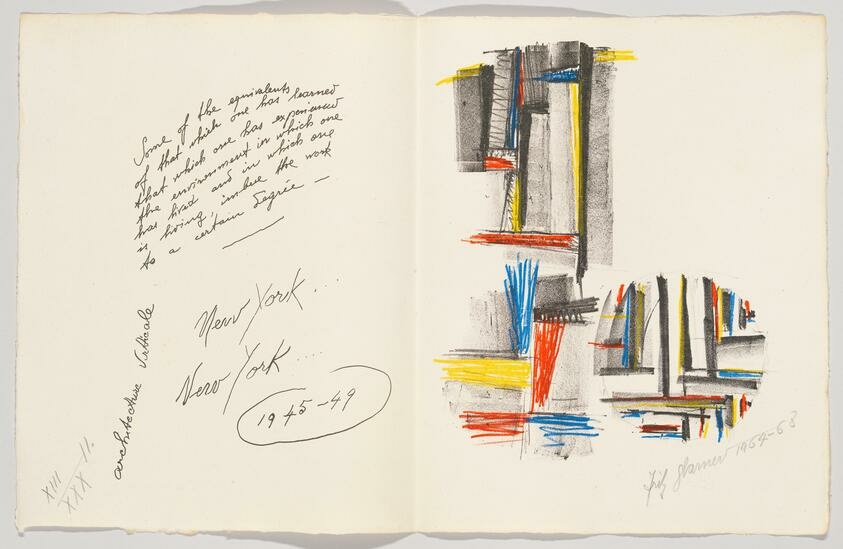 Some of the equivalents
of that which one has learned
that which one has experienced
the environment in which one
has lived and in which one
is living, imbue the work
to a certain degrée —
New York ....
New York ....
1945-49
architecture verticale
XIII
XXX
11.
Fritz Glarner 1964-68